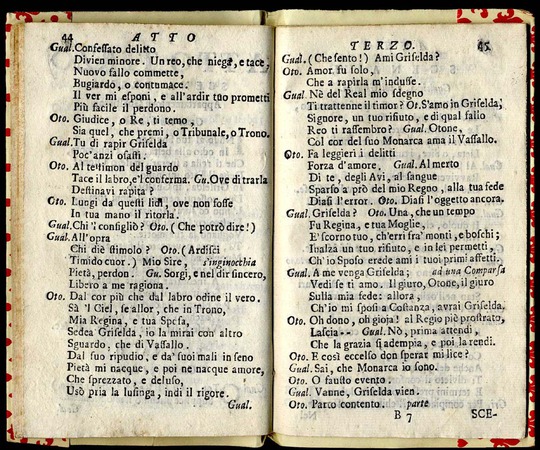 44 ATTO
Gual. Confessato delitto
Divien minore. Un reo, che niega, e tace,
Nuovo fallo commette,
Bugiardo, o contumace.
Il ver mi esponi, e all'ardir tuo prometti
Più facile il perdono.
Oto. Giudice, o Re, ti temo,
Sia quel, che premi, o Tribunale, o Trono.
Gual. Tu di rapir Griselda
Poc'anzi osasti.
Oto. Al testimon del guardo
Tace il labro, e'l conferma. Gu. Ove di trarla
Destinavi rapita?
Oto. Lungi da questi lidi, ove non fosse
In tua mano il ritorla.
Gual. Chi'l consigliò? Oto. (Che potrò dire!)
Gual. All'opra
Chi diè stimolo? Oto. (Ardisci
Timido cuor.) Mio Sire, s'inginocchia
Pietà, perdon. Gu. Sorgi, e nel dir sincero,
Libero a me ragiona.
Oto. Dal cor più che dal labro odine il vero.
Sà 'l Ciel, se allor, che in Trono,
Mia Regina, e tua Sposa,
Sedea Griselda, io la mirai con altro
Sguardo, che di Vassallo.
Dal suo ripudio, e da' suoi mali in seno
Pietà mi nacque, e poi ne nacque amore,
Che sprezzato, e deluso,
Usò pria la lusinga, indi il rigore.
Gual.
TERZO. 45
Gual. (Che sento!) Ami Griselda?
Oto. Amor fu solo,
Che a rapirla m'indusse.
Gual. Nè del Real mio sdegno
Ti trattenne il timor? Ot. S'amo in Griselda,
Signore, un tuo rifiuto, e di qual fallo
Reo ti rassembro? Gual. Otone,
Col cor del suo Monarca ama il Vassallo.
Oto. Fa leggieri i delitti
Forza d'amore. Gual. Al merto
Di te, degli Avi, al sangue
Sparso a prò del mio Regno, alla tua fede
Diasi l'error. Oto. Diasi l'oggetto ancora.
Gual. Griselda? Oto. Una, che un tempo
Fu Regina, e tua Moglie,
E' scorno tuo, ch'erri fra' monti, e boschi;
Inalza un tuo rifiuto, e in lei permetti,
Ch'io Sposo erede ami i tuoi primi affetti.
Gual. A me venga Griselda; ad una Comparsa
Vedi se ti amo. Il giuro, Otone, il giuro
Sulla mia fede: allora,
Ch'io mi sposi a Costanza, avrai Griselda.
Oto. Oh dono, oh gioia! al Regio piè prostrato,
Lascia -- Gual. Nò, prima attendi,
Che la grazia si adempia, e poi la rendi.
Oto. E così eccelso don sperar mi lice?
Gual. Sai, che Monarca io sono.
Oto. O fausto evento.
Gual. Vanne, Griselda vien.
Oto. Parto contento. parte
B 7 SCE-